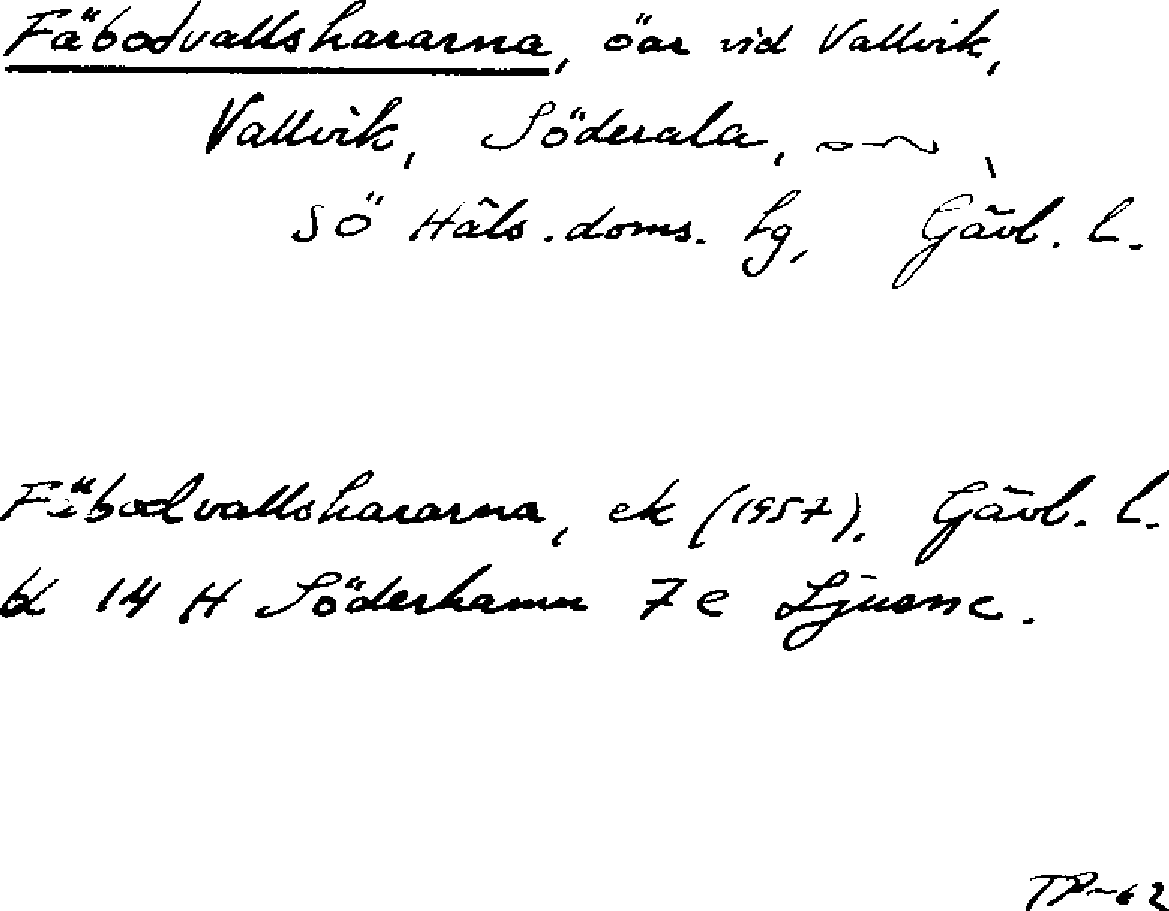 Fäbodvallshararna, öar vid Vallvik,
Vallvik, Söderala,
SÖ Häls. doms. Lg, Gävl. L.
Fäbodvallshararna, ek (1957). Gävl. L.
bl 14 H Söderhamn 7 e Ljusne.
TP-62